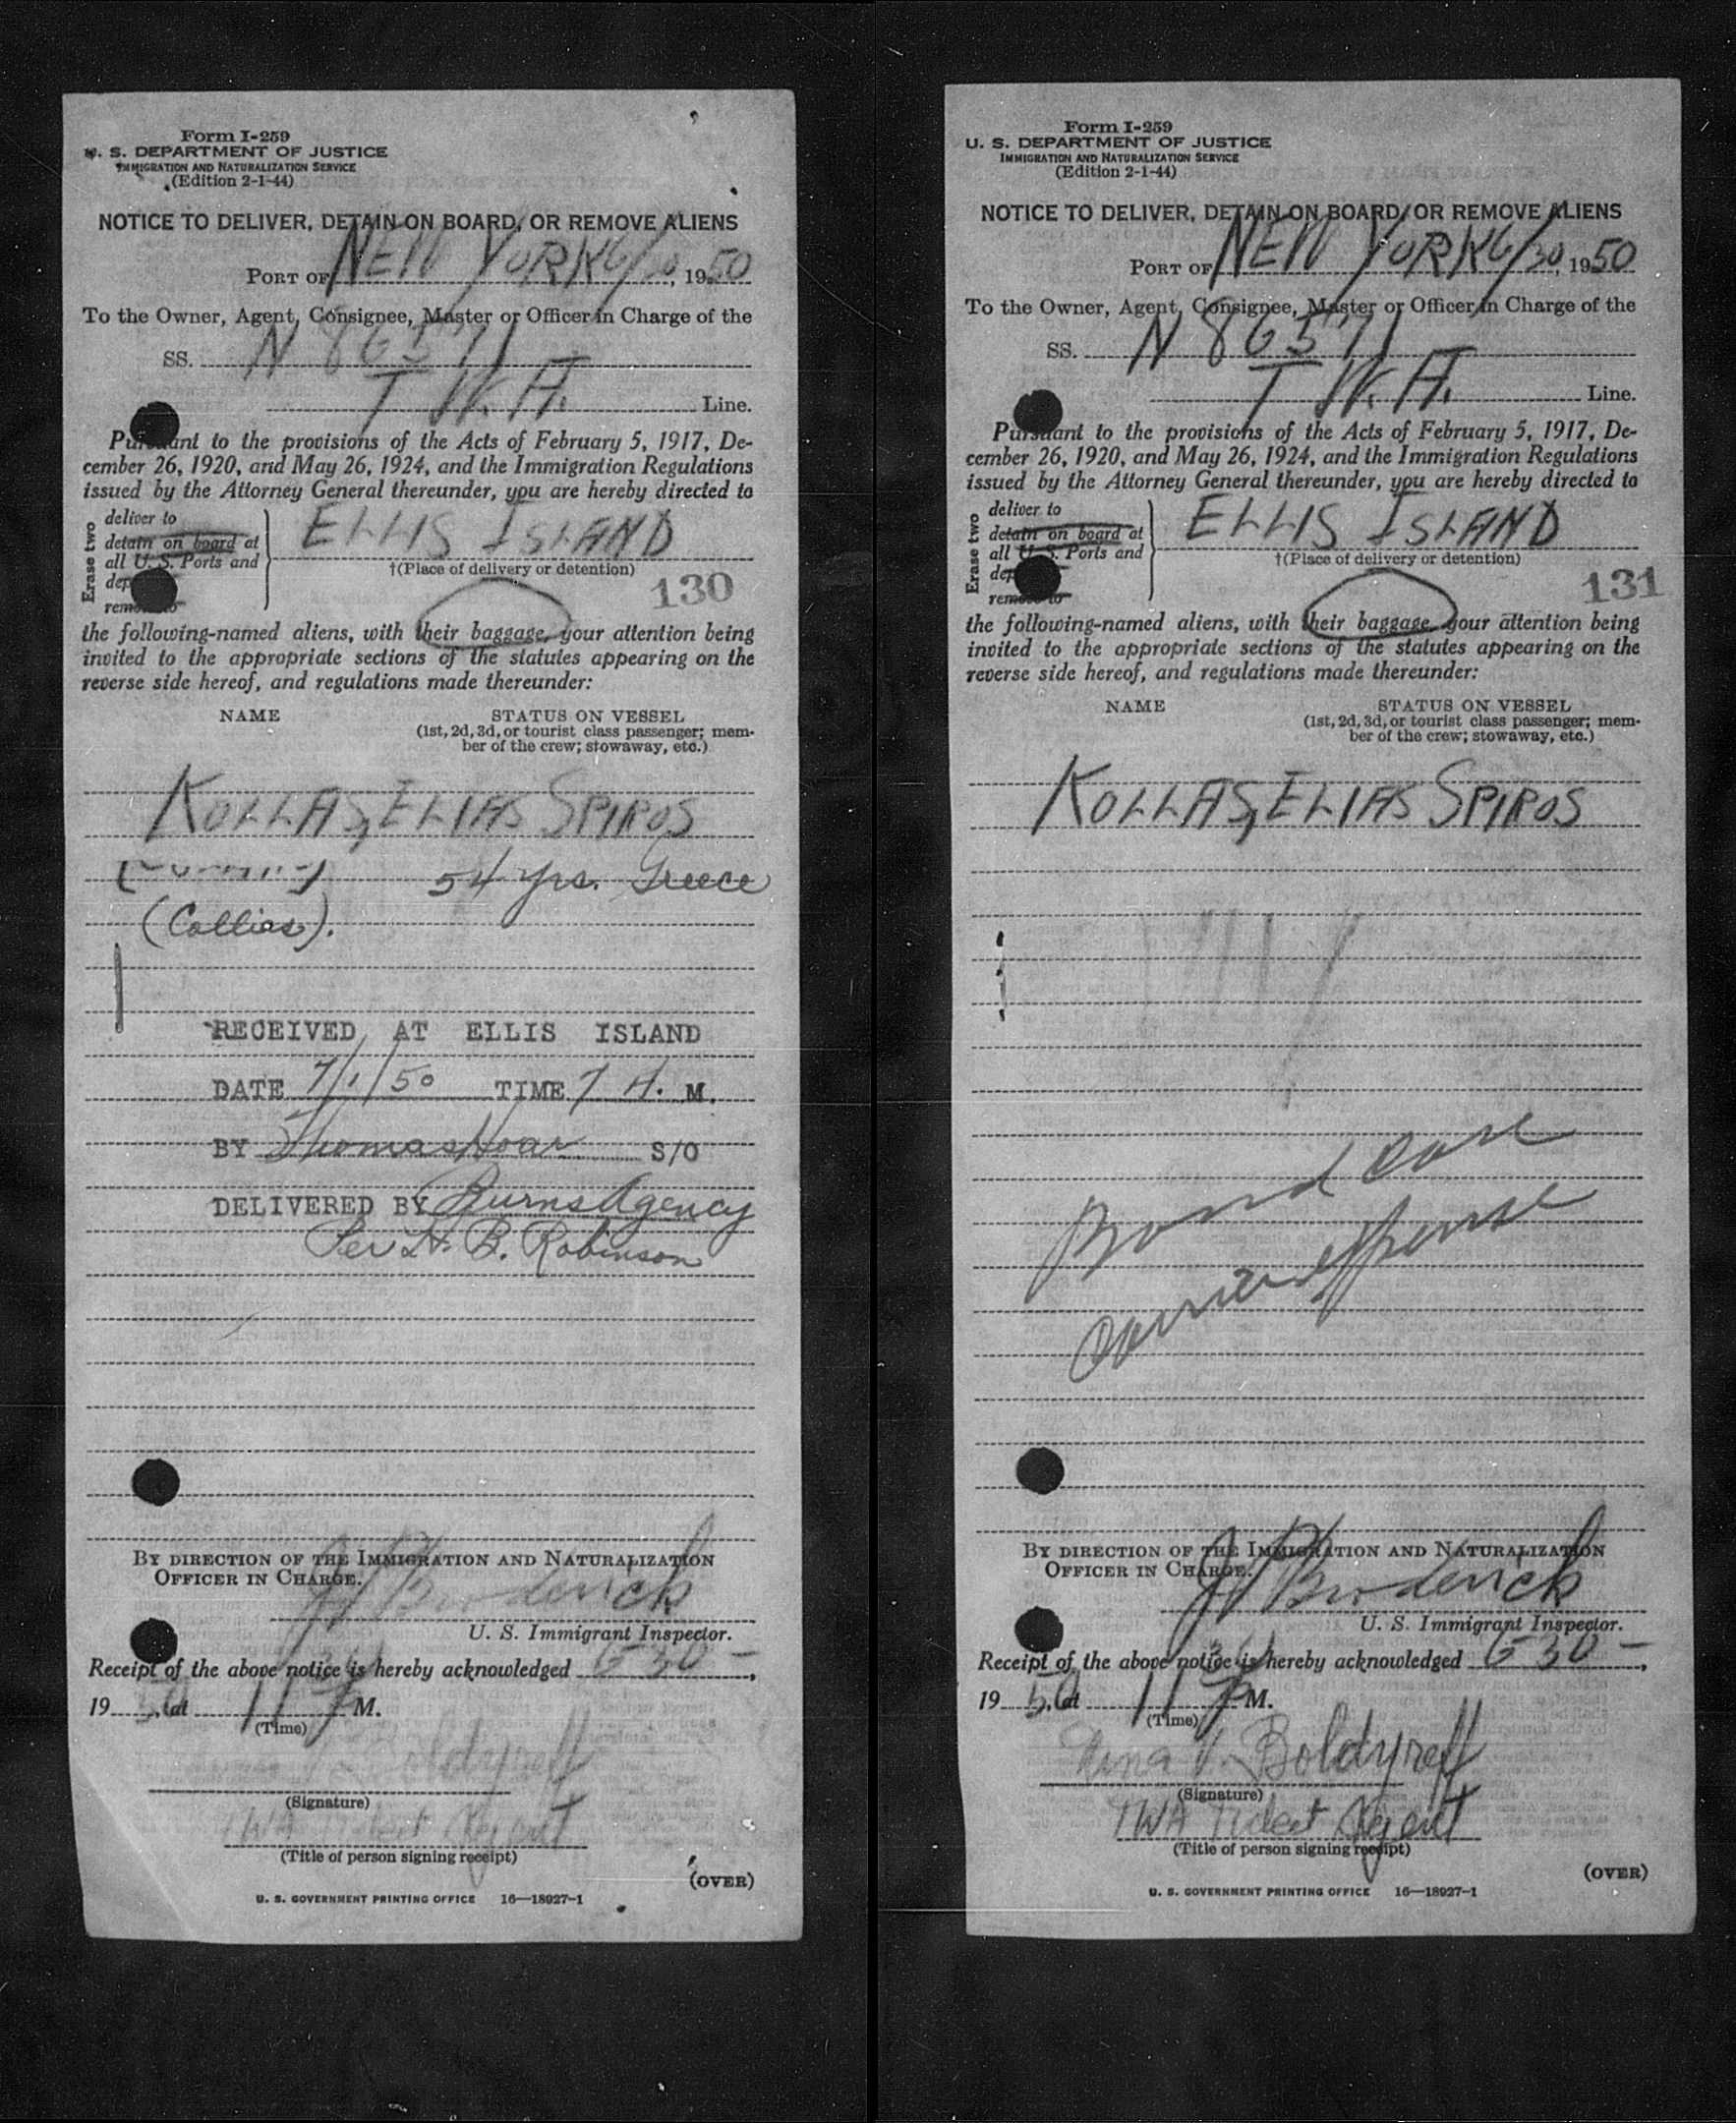 Form I-259
U. S. DEPARTMENT OF JUSTICE
IMMIGRATION AND NATURALIZATION SERVICE
(Edition 2-1-44)
NOTICE TO DELIVER, DETAIN ON BOARD, OR REMOVE ALIENS
PORT OF NEW YORK 6/30, 1950
To the Owner, Agent, Consignee, Master or Officer in Charge of the
SS. N 86571
T W. A. Line.
Pursuant to the provisions of the Acts of February 5, 1917, De-
cember 26, 1920, and May 26, 1924, and the Immigration Regulations
issued by the Attorney General thereunder, you are hereby directed to
Erase two
deliver to
detain on board at
all U. S. Ports and
remove to
ELLIS ISLAND
†(Place of delivery or detention)
130
the following-named aliens, with their baggage, your attention being
invited to the appropriate sections of the statutes appearing on the
reverse side hereof, and regulations made thereunder:
NAME STATUS ON VESSEL
(1st, 2d, 3d, or tourist class passenger; mem-
ber of the crew; stowaway, etc.)
KOLLAS, ELIAS SPIROS
54 yrs. Greece
(Collias).
RECEIVED AT ELLIS ISLAND
DATE 7/1/50 TIME 7 A. M.
BY Thomas Hoar S/O
DELIVERED BY Burns Agency
Per H. B. Robinson
BY DIRECTION OF THE IMMIGRATION AND NATURALIZATION
OFFICER IN CHARGE.
J Broderick
U. S. Immigrant Inspector.
Receipt of the above notice is hereby acknowledged 6-30-,
19 50, at 11 P M.
(Time)
Boldyreff
(Signature)
TWA Ticket Agent
(Title of person signing receipt)
(OVER)
U. S. GOVERNMENT PRINTING OFFICE 16—18927-1
Form I-259
U. S. DEPARTMENT OF JUSTICE
IMMIGRATION AND NATURALIZATION SERVICE
(Edition 2-1-44)
NOTICE TO DELIVER, DETAIN ON BOARD, OR REMOVE ALIENS
PORT OF NEW YORK 6/30, 1950
To the Owner, Agent, Consignee, Master or Officer in Charge of the
SS. N 86571
T W. A. Line.
Pursuant to the provisions of the Acts of February 5, 1917, De-
cember 26, 1920, and May 26, 1924, and the Immigration Regulations
issued by the Attorney General thereunder, you are hereby directed to
Erase two
deliver to
detain on board at
all U. S. Ports and
remove to
ELLIS ISLAND
†(Place of delivery or detention)
131
the following-named aliens, with their baggage, your attention being
invited to the appropriate sections of the statutes appearing on the
reverse side hereof, and regulations made thereunder:
NAME STATUS ON VESSEL
(1st, 2d, 3d, or tourist class passenger; mem-
ber of the crew; stowaway, etc.)
KOLLAS, ELIAS SPIROS
Bond case
carrier expense
BY DIRECTION OF THE IMMIGRATION AND NATURALIZATION
OFFICER IN CHARGE.
J Broderick
U. S. Immigrant Inspector.
Receipt of the above notice is hereby acknowledged 6-30-,
19 50, at 11 P M.
(Time)
Nina V. Boldyreff
(Signature)
TWA Ticket Agent
(Title of person signing receipt)
(OVER)
U. S. GOVERNMENT PRINTING OFFICE 16—18927-1